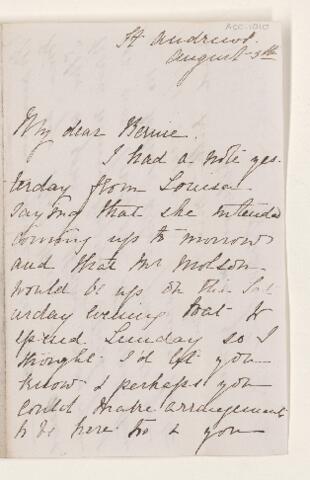 ACC-1010
St Andrews.
August 9th
My dear Bernie.
I had a note yes-
terday from Louisa
saying that she intends
coming up to morrow
and that Mr Molson
would be up on the Sat-
urday evening boat to
spend Sunday so I
thought I'd let you
know & perhaps you
could make arrangement
to be here too & you